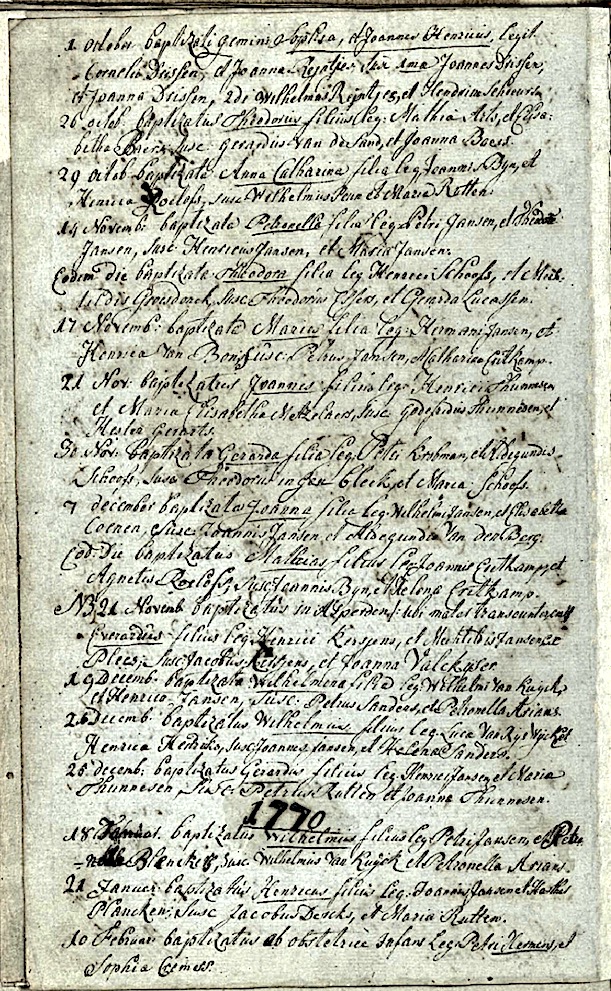 1 October baptizati gemini et Joannes Henricus, legit.
Cornelii Drissen, et Joanna Reintjes Susc 1mæ Joannes Drissen,
et Joanna Drissen, 2di Wilhelmus Reintjes, et Hendrina
26 octob. baptizatus Theodorus filius leg: Mathiæ Arts, et Elisa-
betha susc: Gerardus van de Sand, et Joanna
29 Octob baptizata Anna Catharina filia leg Joannis Byn, et
Henrica Roelofs, susc Wilhelmus et Maria Rutten.
14 Novemb: baptizata Petronella filia leg Petri Jansen, et
Jansen, susc: Henricus Jansen, et Maria Jansen.
Eodem die baptizata Theodora filia leg Henrici Schoofs, et Mech-
tildis Groesdonck, Susc Theodorus et Gerarda Lucassen.
17 Novemb: baptizata Maria filia leg: Hermani Jansen, et
Henrica Van susc: Petrus Jansen, Catharina Eertkamp.
21 Nov: baptizatus Joannes filius leg: Henrici Thunnesen
et Maria Elisabetha Susc Godefridus Thunnesen, et
Hester Gerarts.
30 Nov: baptizata Gerarda filia leg Petri et Aldegundis
Schoofs, Susc Theodorus in gen bleek, et Maria Schoofs.
7 december baptizata Joanna filia leg: Wilhelmi Jansen, et Elisabetha
Susc: Joannes Jansen, et Aldegunda Van den Berg.
Eod: Die baptizatus Mathias filius leg Joannis Eertkamp, et
Agnetis Roelofs, Susc Joannes Byn, et Helena Eertkamp.
NB 21 Novemb baptizatus in Asperden ubi
Everardus filius leg: Henrici Kersjens, et Mechtildis Jansen
Plees, susc: Jacobus et Joanna Valckeser
19 Decemb: baptizata Wilhelmina filia leg Wilhelmi Van Kuijck,
et Henrica Jansen, Susc: Petrus Sanders, et Petronella Arians.
26 Decemb: baptizatus Wilhelmus filius leg: Luca Van Ryswyck et
Henrica Hendriks, susc Joannes Jansen, et Helena Sanders.
26 decemb: baptizatus Gerardus filius leg: Henrici Jansen, et Maria
Thunnesen, susc: Petrus Rutten et Joanna Thunnesen.
1770
18 Januar. baptizatus Wilhelmus filius leg Petri Jansen, et Petro-
nella susc: Wilhelmus Van Kuijck et Petronella Arians.
21 Januar: baptizatus Henricus filius leg: Joannis Jansen et
Plancken: susc Jacobus Derks, et Maria Rutten.
10 Februar: baptizatus ab obstetrice infans leg Petri Hermens, et
Sophia Cremers.